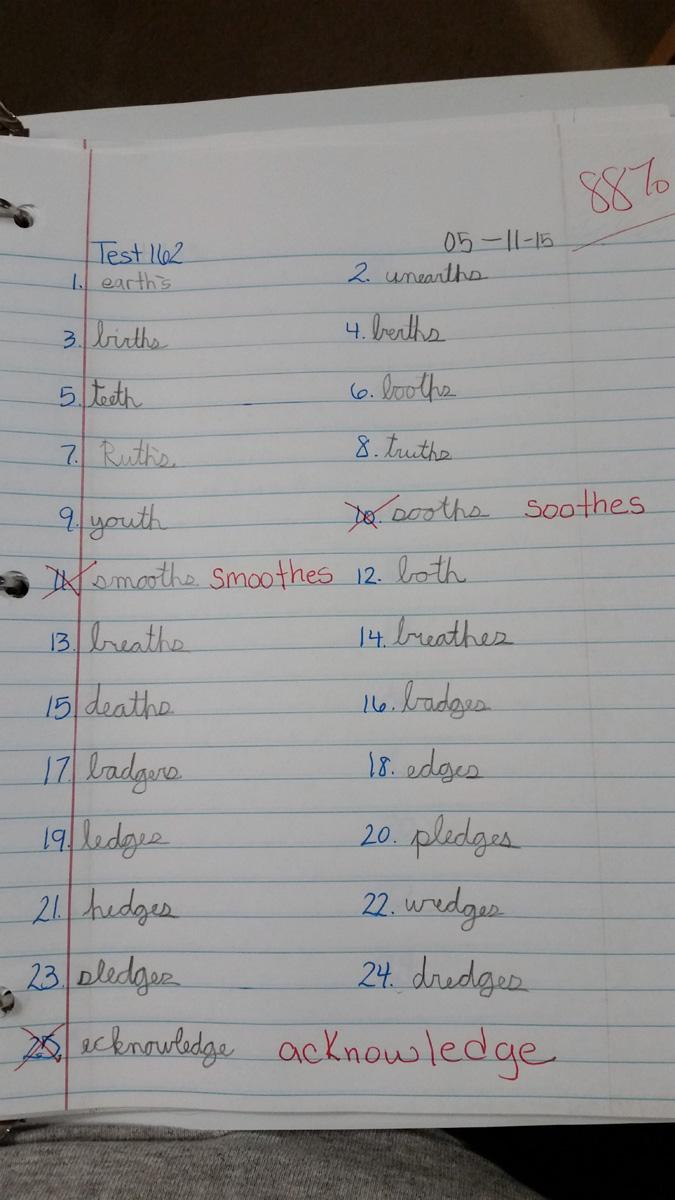 88%
Test 162 05-11-15
1. earth's 2. unearths
3. births 4. berths
5. teeth 6. booths
7. Ruth's 8. truths
9. youth 10. sooths soothes
11. smooths smoothes 12. both
13. breaths 14. breathes
15 deaths 16. badges
17. badgers 18. edges
19. ledges 20. pledges
21. hedges 22. wedges
23. sledges 24. dredges
25. ecknowledge acknowledge